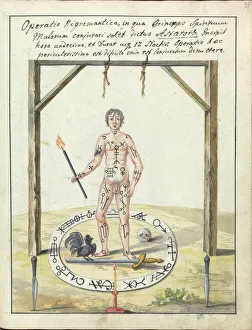 Operatio Nigromantica, in qua Princeps Spirituum
Malorum conjurari solet dictus Astaroth, Incipit
hora undecima, et Durat usq 12 Noctis Operatio hæc
periculosissima est enim est Conjuratum dimittere